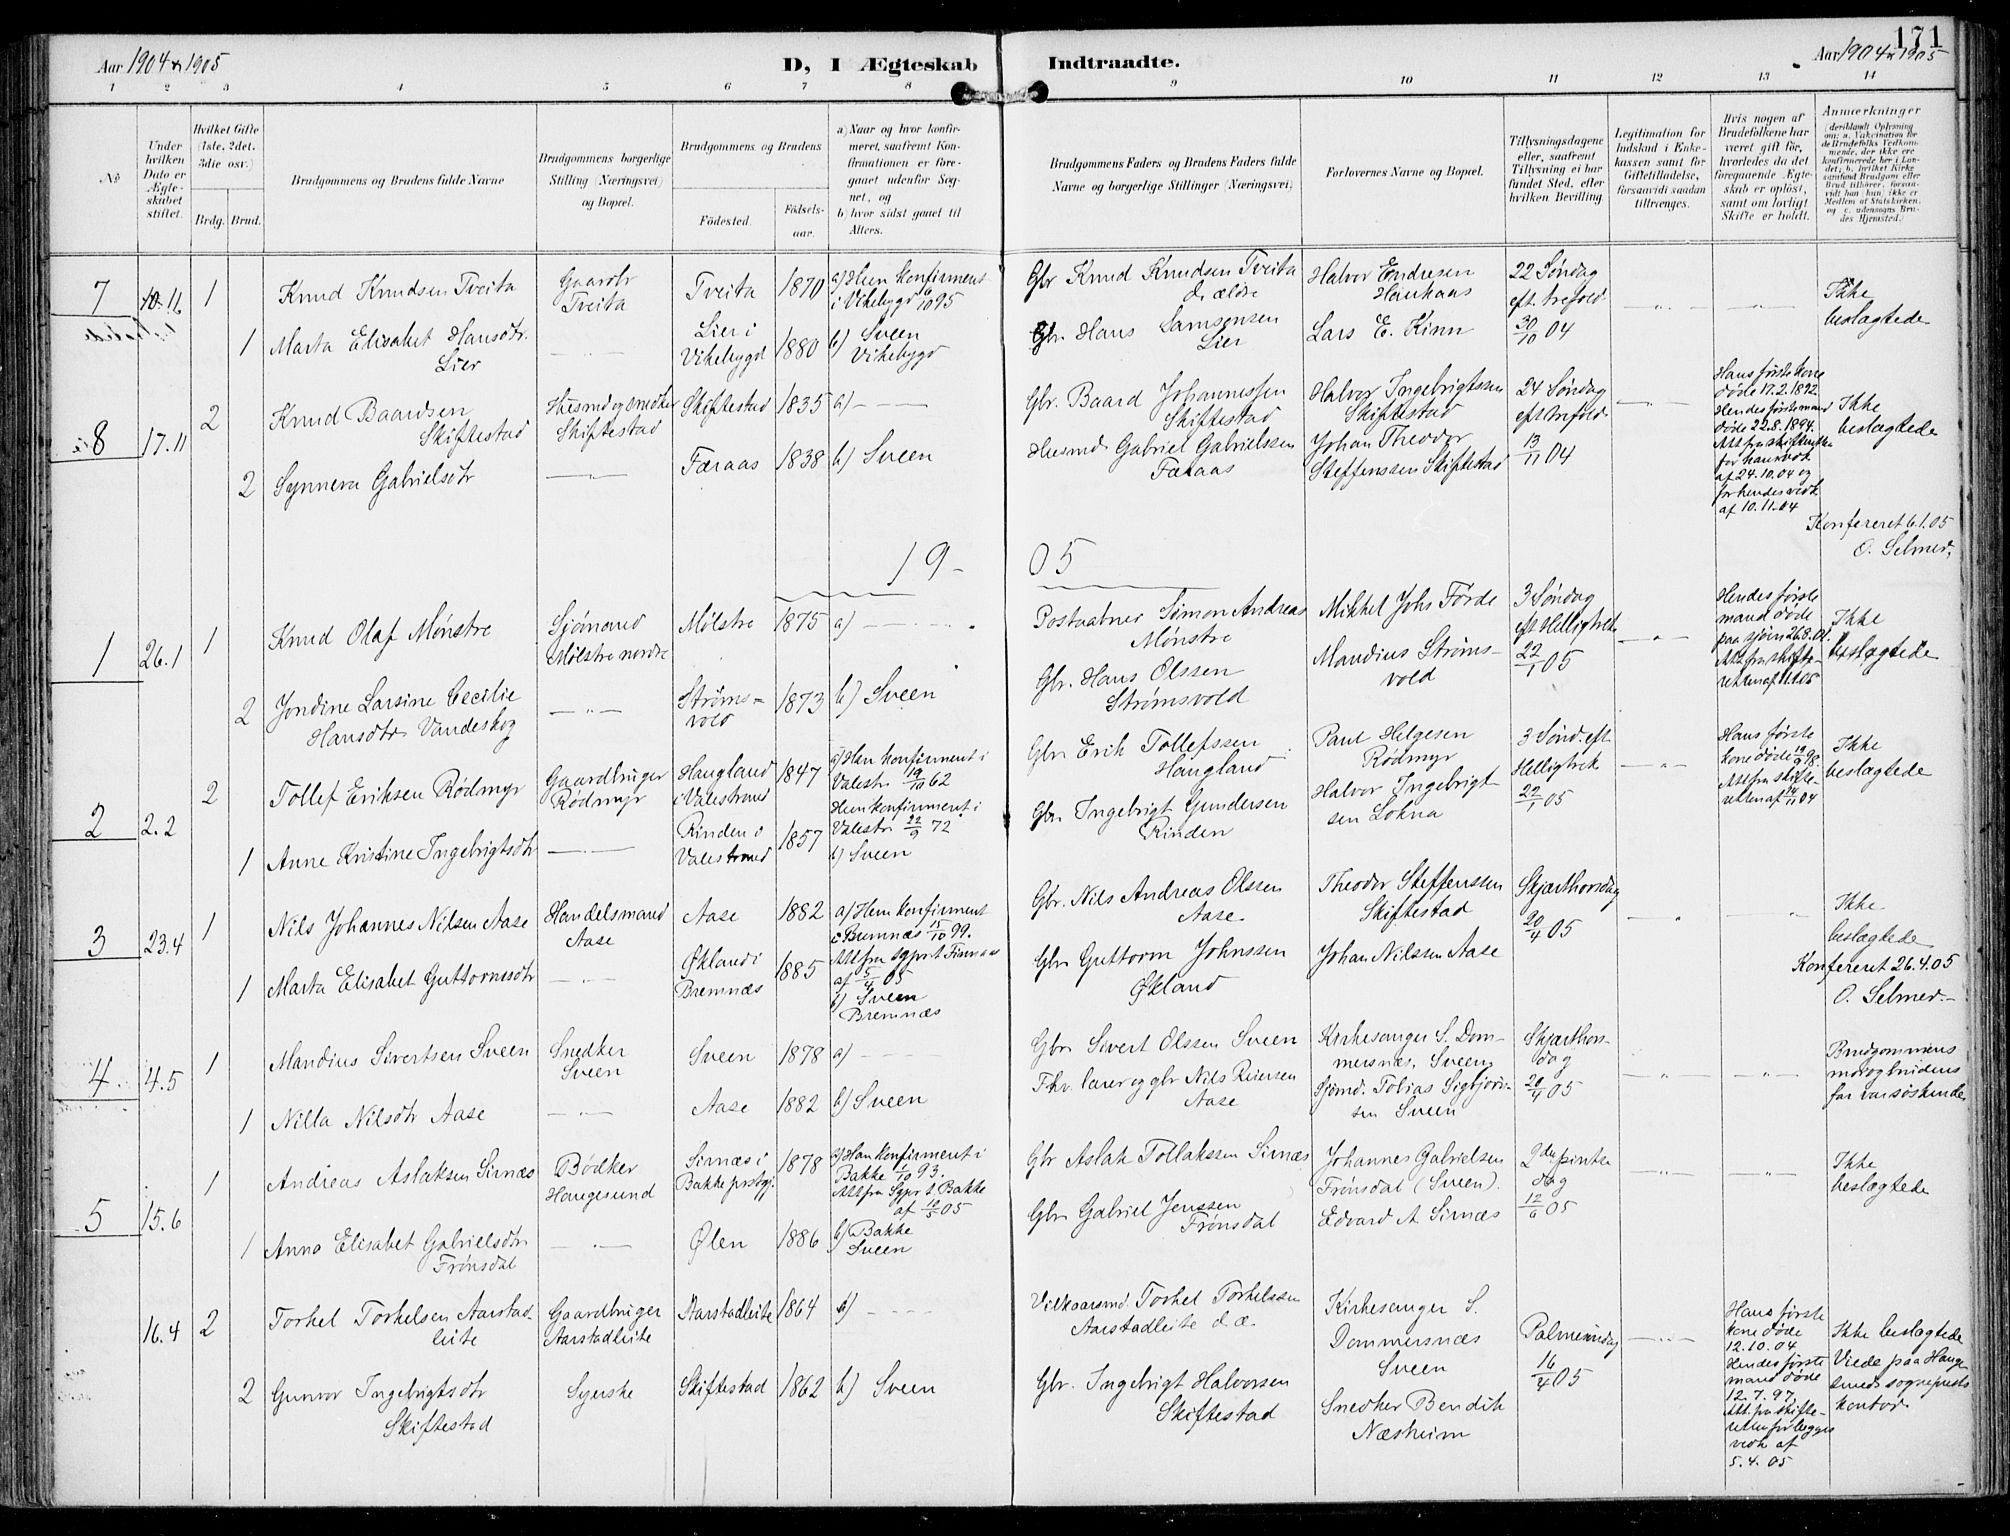 171
Aar 1904 & 1905
D, I Ægteskab Indtraadte.
Aar 1904 & 1905
1 2 3 4 5 6 7 8 9 10 11 12 13 14
No
Under hvilken Dato er Ægteskabet stiftet.
Hvilket Gifte (1ste, 2det. 3die osv.)
Brdg. Brud.
Brudgommens og Brudens fulde Navne
Brudgommens borgerlige Stilling (Næringsvei) og Bopæl.
Brudgommens og Brudens
Födested.
Födselsaar.
a) Naar og hvor konfirmeret, saafremt Konfirmationen er foregaaet udenfor Sognet, og
b) hvor sidst gaaet til Alters.
Brudgommens Faders og Brudens Faders fulde Navne og borgerlige Stillinger (Næringsvei)
Forlovernes Navne og Bopæl.
Tillysningsdagene eller, saafremt Tillysning ei har fundet Sted, efter hvilken Bevilling
Legitimation for Indskud i Enkekassen samt for Giftetilladelse, forsaavidt saadan tiltrænges.
Hvis nogen af Brudefolkene har været gift för, hvorledes da det foregaaende Ægteskab er oplöst, samt om lovligt Skifte er holdt.
Anmerkninger
(deriblandt Oplysning om: a. Vakcination for de Brudefolks Vedkommende, der ikke ere konfirmerede her i Landet; b. hvilket Kirkesamfund Brudgom eller Brud tilhörer, forsaavidt han (hun) ikke er Medlem af Statskirken, og c. udensogns Brudes Hjemsted.
7 16.11 1 Knud Knudsen Tveita
Gaardbr Tveita
Tveita 1870
a) Hun konfirmeret i Vikebygd 6/10 95
Gbr Knud Knudsen Tveita d. ældre
Halvor Endresen Haukaas
22 Søndag eft trefold. 30/10 04
Ikke beslægtede
1 Marta Elisabet Hansdtr. Lier
Lier i Vikebygd 1880
b) Sveen Vikebygd
Gbr. Hans Samsonsen Lier
Lars E. Kinn
8 17.11 2 Knud Baardsen Skiftestad
Husmd og snedker Skiftestad
Skiftestad 1835 a) -
Gbr. Baard Johannessen Skiftestad
Halvor Ingebrigtssen Skiftestad
24 Søndag eft trefold. 13/11 04
Hans første kone døde 17.2.1892
Hendes første mand døde 22.8.1894.
Att fra skifteretten for hans vedk af 24.10.04 og for hendes vedk af 10.11.04
Ikke beslægtede
2 Synneva Gabrielsdtr
Færaas 1838 b) Sveen
Husmd. Gabriel Gabrielssen Færaas
Johan Theodor Steffenssen Skiftestad
Konfereret 6.1.05
O. Selmer.
19-05
1 26.1 1 Knud Olaf Mønstre
Sjømand Mølstre nordre
Mølstre 1875 a) -
Postaabner Simon Andreas Mønstre
Mikkel Johs Førde
3 Søndag eft Helligtrek 22/1 05
Hendes første mand døde paa sjøen 26.8.01.
Att fra skifteretten af 11.1.05
Ikke beslægtede
2 Jondine Larsine Cecilie Hansdtr Vandeskog
Strømsvold 1873 b) Sveen
Gbr. Hans Olssen Strømsvold
Mandius Strømsvold
2 2.2 2 Tollef Eriksen Rødmyr
Gaardbruger Rødmyr
Haugland i Valestrand 1847
a) Han konfirmeret i Valestr 19/10 62
Hun konfirmeret i Valestr 22/9 72
Gbr Erik Tollefssen Haugland
Paul Helgesen Rødmyr
3 Sønd. eft Helligtrek 22/1 05
Hans første kone døde 19/9 98.
Att fra skifteretten af 14/11 04
Ikke beslægtede
1 Anne Kristine Ingebrigtsdtr
Rinden i Valestrand 1857
b) Sveen
Gbr Ingebrigt Gundersen Rinden
Halvor Ingebrigtsen Lokna
3 23.4 1 Nils Johannes Nilsen Aase
Handelsmand Aase
Aase 1882
a) Hun konfirmeret i Bremnæs 15/10 99.
Att fra sgpr t. Finnaas af 5/4 05
Gbr. Nils Andreas Olssen Aase
Theodor Steffenssen Skiftestad
Skjærthorsdag 20/4 05
Ikke beslægtede
1 Marta Elisabet Guttormsdtr
Økland i Bremnæs 1885
b) Sveen Bremnæs
Gbr Guttorm Johnssen Økland
Johan Nilssen Aase
Konfereret 26.4.05
O. Selmer.-
4 4.5 1 Mandius Sivertsen Sveen
Snedker Sveen
Sveen 1878 a) -
Gbr Sivert Olssen Sveen
Kirkesanger S. Dommersnæs, Sveen
Skjærthorsdag 20/4 05
Brudgommens mor og brudens far var søskende
1 Nilla Nilsdtr Aase
Aase 1882 b) Sveen
Fhv. lærer og gbr Nils Reiersen Aase
Sjømd. Tobias Sigbjørnsen Sveen
5 15.6 1 Andreas Aslaksen Sirnæs
Bødker Haugesund
Sirnæs i Bakke prstgj. 1878
a) Han konfirmeret i Bakke 1/10 93.
Att fra Sgpr t. Bakke af 10/5 05
Gbr Aslak Tollakssen Sirnæs
Johannes Gabrielsen Frønsdal (Sveen).
2den pintsedag 12/6 05
Ikke beslægtede
1 Anna Elisabet Gabrielsdtr Frønsdal
Ølen 1886
b) Bakke Sveen
Gbr Gabriel Jenssen Frønsdal
Edvard A Sirnæs
16.4 2 Torkel Torkelsen Aarstadleite
Gaardbruger Aarstadleite
Aarstadleite 1864 a) -
Vilkaarsmd Torkel Torkelssen Aarstadleite d. æ.
Kirkesanger S. Dommersnæs Sveen
Palmesøndag 16/4 05
Hans første kone døde 12.10.04
Hendes første mand døde 12.7.97.
Att. fra skifteretten for begges vedk af 5.4.05
Ikke beslægtede
Viede paa Haugesunds sogneprests kontor
2 Gunvor Ingebrigtsdtr Skiftestad
Syerske
Skiftestad 1862 b) Sveen
Gbr. Ingebrigt Halvorsen Skiftestad
Snedker Bendik Næsheim